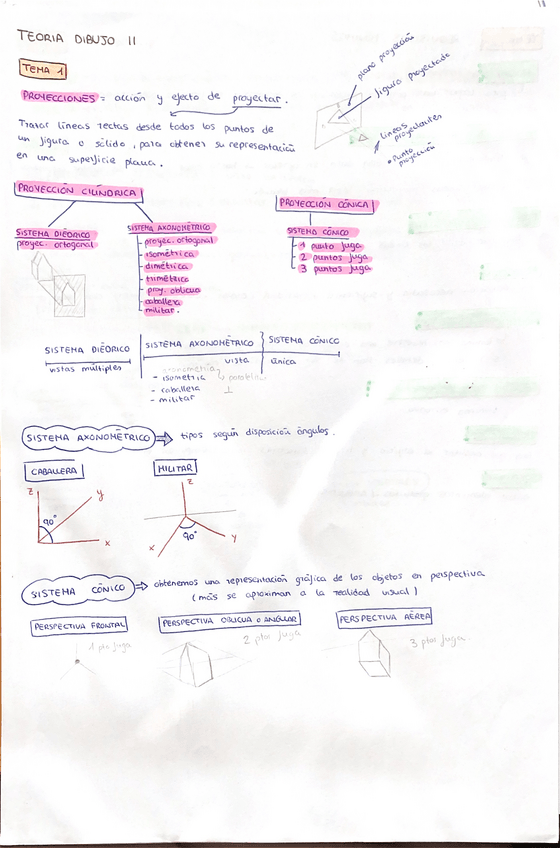 TEORIA DIBUJO II
TEMA 1
plano proyección
figura proyectada
líneas proyectantes
• Punto proyección
PROYECCIONES = acción y efecto de proyectar.
Tratar líneas rectas desde todos los puntos de
un figura o sólido, para obtener su representación
en una superficie plana.
PROYECCIÓN CILÍNDRICA
PROYECCIÓN CÓNICA
SISTEMA DIÉDRICO
proyec. ortogonal
SISTEMA AXONOMÉTRICO
- proyec. ortogonal
- isométrica
- dimétrica
- trimétrica
- proy. oblicua
- caballera
- militar.
SISTEMA CÓNICO
- 1 punto fuga
- 2 puntos fuga
- 3 puntos fuga
SISTEMA DIÉDRICO
SISTEMA AXONOMÉTRICO
SISTEMA CÓNICO
vistas múltiples
vista única
axonometría
- isometría
- caballera
- militar
SISTEMA AXONOMÉTRICO ⇒ tipos según disposición ángulos.
CABALLERA
MILITAR
z y 90° x
z x 90° y
SISTEMA CÓNICO ⇒ obtenemos una representación gráfica de los objetos en perspectiva
(más se aproximan a la realidad visual)
PERSPECTIVA FRONTAL
PERSPECTIVA OBLICUA O ANGULAR
PERSPECTIVA AÉREA
1 pto fuga
2 ptos fuga
3 ptos fuga.